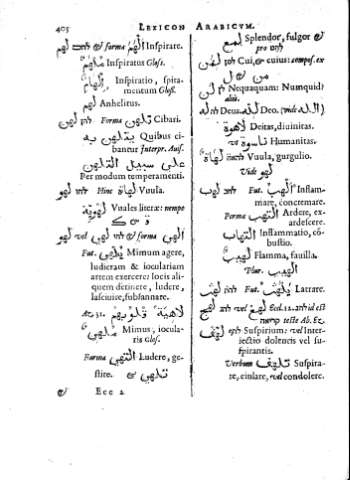 403 LEXICON ARABICVM.
لهم להם & forma الهم Inspirare.
ملهم Inspiratus Glos.
إلهام Inspiratio, spira-
mentum Glos.
لهم Anhelitus.
لهن להן Forma تلهن Cibari.
يتلهن به Quibus ci-
bantur Interpr. Auis.
على سبيل التلهن
Per modum temperamenti.
لهو להו Hinc لهاة Vuula.
لهوية Vuales literæ: nempe
ق & ك
لهو להו vel لهى & forma الهى
Fut. يلهى Mimum agere,
ludicram & iocularium
artem exercere: iocis ali-
quem detinere, ludere,
lasciuire, subsannare.
لاهية قلوبهم
ملهي Mimus, iocula-
ris Glos.
Forma التهى Ludere, ge-
stire. & تلهى
& Eee 2
لمع Splendor, fulgor &
pro
لمن Cui, & cuius: compos. ex
ل & من
لن לן Nequaquam: Numquid:
لله Deus الله Deo. (vide
لاهوت Deitas, diuinitas.
ناسوت vt Humanitas.
لهاة Vuula, gurgulio.
Vide لهو
لهب להב Fut. الهب Inflam-
mare, concremare.
Forma التهب Ardere, ex-
ardescere.
التهاب Inflammatio, cō-
bustio.
لهيب Flamma, fauilla.
Plur. الهيب
لهث Fut. يلهث Latrare.
لهج Eccl. 12. id est
teste Ab. Ez.
لهف Suspirium: vel Inter-
iectio dolentis vel su-
spirantis.
Verbum تلهف Suspira-
re, eiulare, vel condolere.